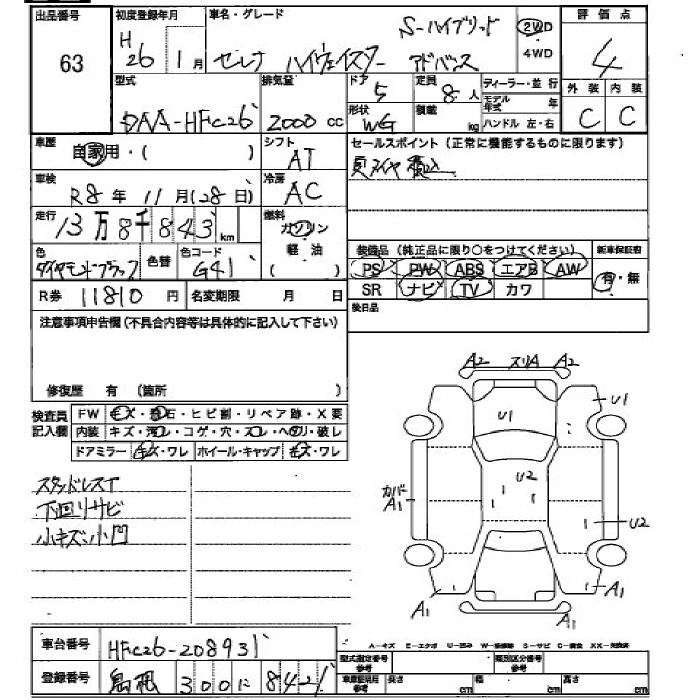 出品番号
63
初度登録年月
H26 1月
車名・グレード
セレナ ハイウェイスター S-ハイブリッド アドバンス
2WD・4WD
評価点
4
外装 内装
C C
型式
DAA-HFC26
排気量
2000 cc
ドア
5
形状
WG
定員
8人
積載
kg
ディーラー・並行
モデル年式 年
ハンドル 左・右
車歴
自家用・( )
シフト
AT
セールスポイント(正常に機能するものに限ります)
夏タイヤ積込
車検
R8年11月(28日)
冷房
AC
走行
13万8千843km
燃料
ガソリン
軽・油
( )
色
ダイヤモンドブラック
色替
色コード
G41
装備品(純正品に限り○をつけてください)
PS PW ABS エアB AW
SR ナビ TV カワ
新車保証書
有・無
R券 11810円
名変期限 月 日
後日品
注意事項申告欄(不具合内容等は具体的に記入して下さい)
修復歴 有 (箇所 )
検査員記入欄
FW キズ・飛石・ヒビ割・リペア跡・X要
内装 キズ・汚レ・コゲ・穴・スレ・ヘタリ・破レ
ドアミラー キズ・ワレ ホイール・キャップ キズ・ワレ
スタッドレスT
下回りサビ
小キズ小凹
A2 スリA A2
U1
U1
U2
カバーA1
U2
A1
A1
A-キズ E-エクボ U-凹み W-補修跡 S-サビ C-腐食 XX-交換済
車台番号
HFC26-208931
登録番号
島根 300 に 8421
型式指定番号 参考
類別区分番号 参考
車庫証明用 参考
長さ cm
幅 cm
高さ cm